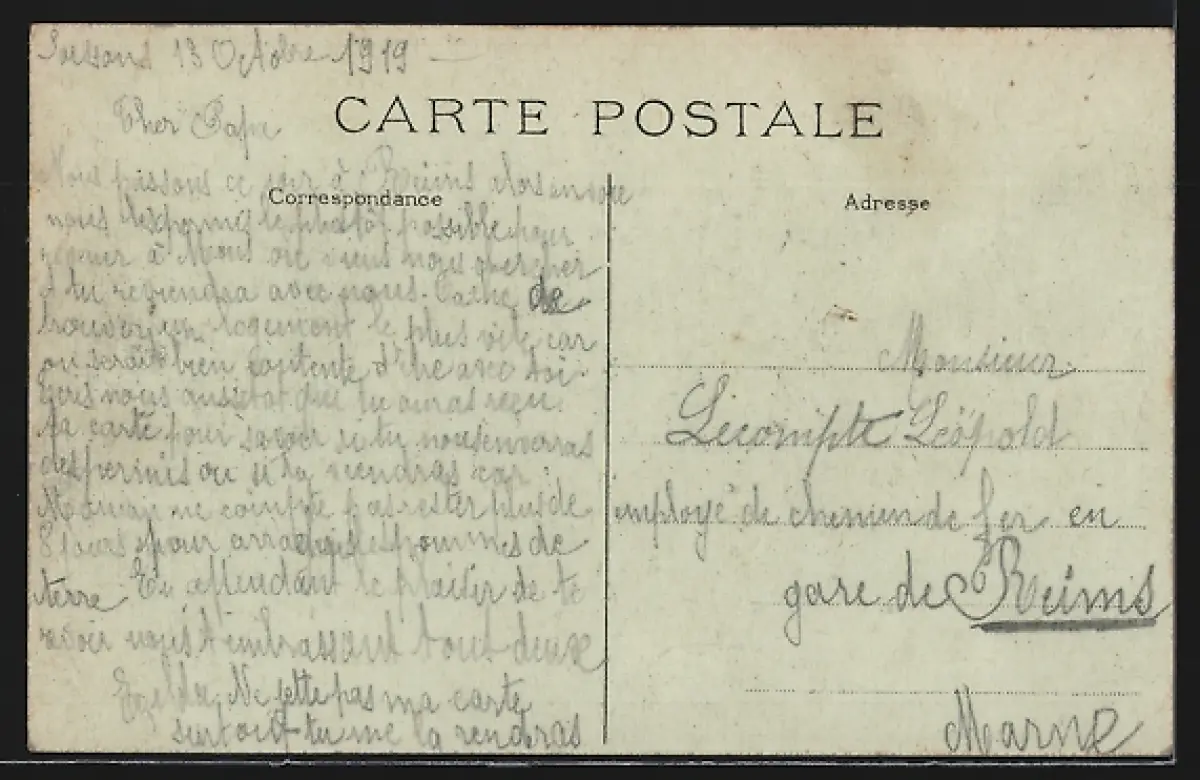 Soissons 13 Octobre 1919
CARTE POSTALE
Cher Papa
Nous passons ce soir à Reims alors envoie
Correspondance
nous les permis le plutôt possible pour
à Mons ou viens nous chercher
et tu reviendra avec nous. Tache de
trouver un logement le plus vite car
on serait bien contente d'être avec toi
Ecris nous aussitot que tu auras reçu
ta carte pour savoir si tu nous enverras
des permis ou si tu viendras car
Maman ne compte pas rester plus de
8 jours pour arracher les pommes de
terre. En attendant le plaisir de te
revoir nous t'embrassant tout deux
Ne jette pas ma carte
surtout tu me la rendras
Adresse
Monsieur
Lecompte Léopold
employé de chemin de fer en
gare de Reims
Marne